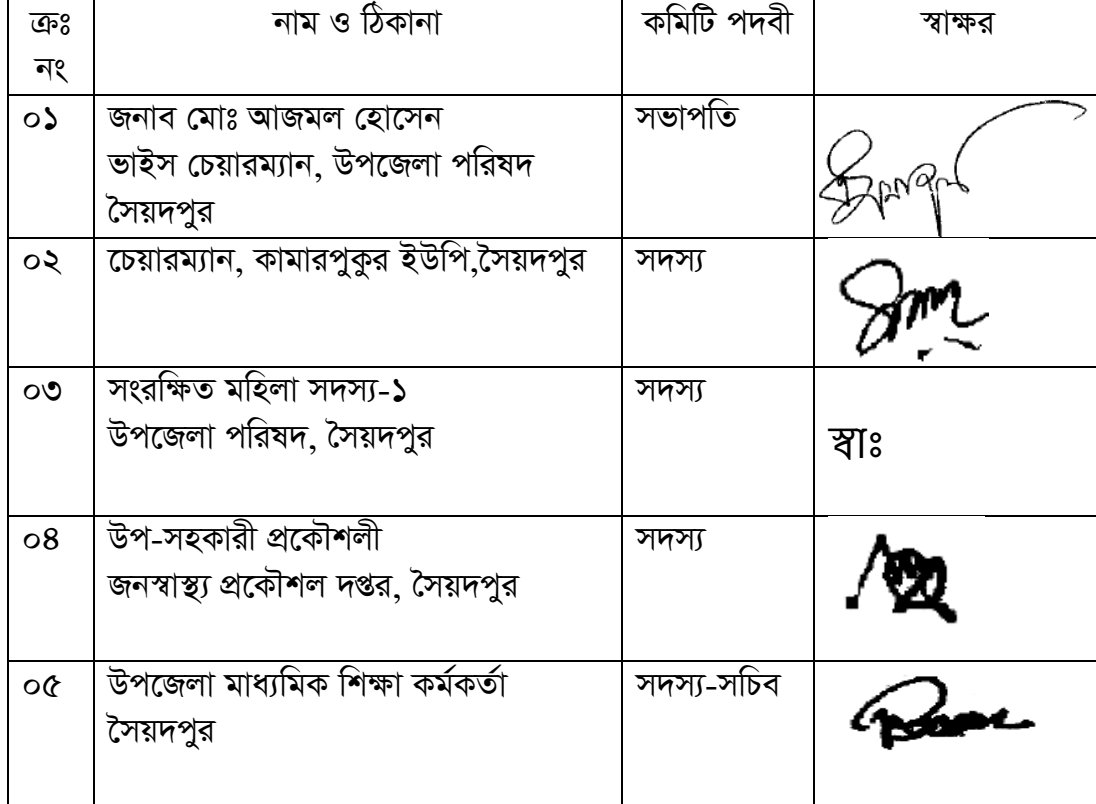 ক্রঃ নাম ও ঠিকানা কমিটি পদবী স্বাক্ষর
নং
০১ জনাব মোঃ আজমল হোসেন সভাপতি
ভাইস চেয়ারম্যান, উপজেলা পরিষদ
সৈয়দপুর
০২ চেয়ারম্যান, কামারপুকুর ইউপি,সৈয়দপুর সদস্য
০৩ সংরক্ষিত মহিলা সদস্য-১ সদস্য
উপজেলা পরিষদ, সৈয়দপুর স্বাঃ
০৪ উপ-সহকারী প্রকৌশলী সদস্য
জনস্বাস্থ্য প্রকৌশল দপ্তর, সৈয়দপুর
০৫ উপজেলা মাধ্যমিক শিক্ষা কর্মকর্তা সদস্য-সচিব
সৈয়দপুর